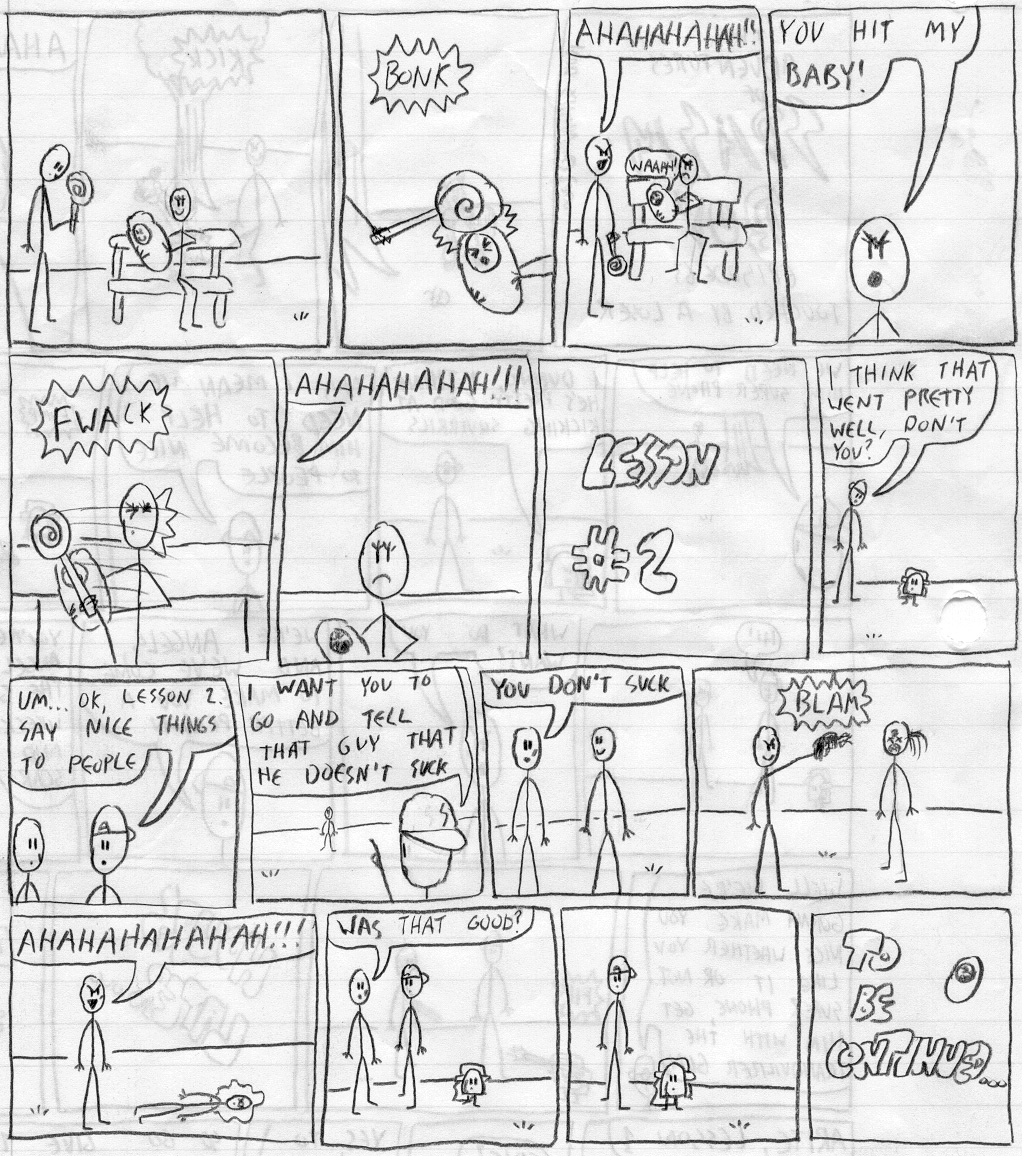 BONK
AHAHAHAHAH!!
WAAAH!
YOU HIT MY
BABY!
FWACK
AHAHAHAHAH!!!
LESSON
#2
I THINK THAT
WENT PRETTY
WELL, DON'T
YOU?
UM... OK, LESSON 2.
SAY NICE THINGS
TO PEOPLE
I WANT YOU TO
GO AND TELL
THAT GUY THAT
HE DOESN'T SUCK
YOU DON'T SUCK
BLAM
AHAHAHAHAHAH!!!
WAS THAT GOOD?
TO
BE
CONTINUED...